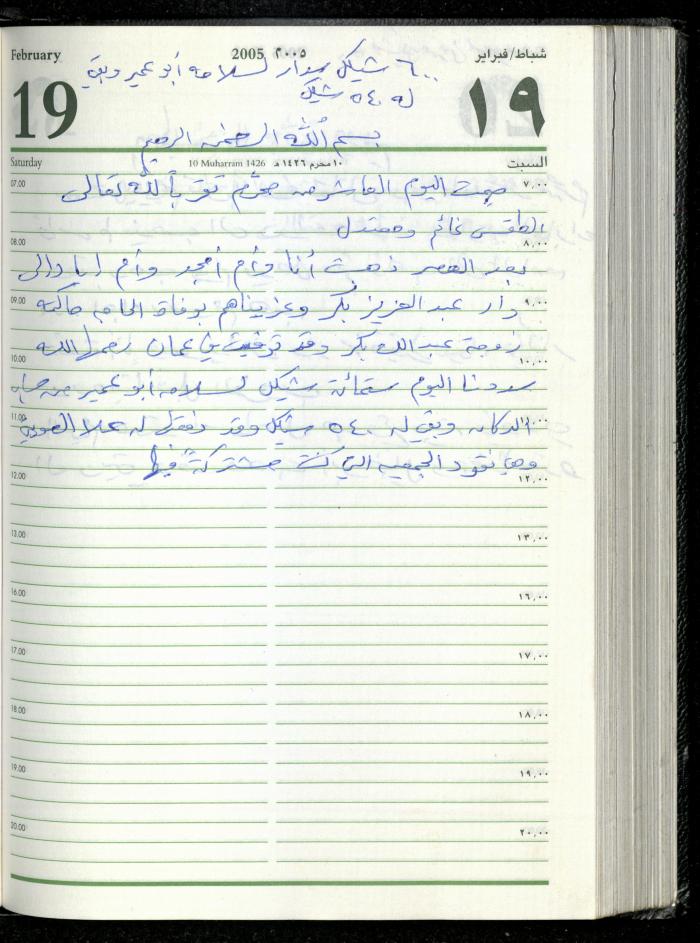 February 2005 ٢٠٠٥ شباط/فبراير
٦٠٠ شيكل سداد لسلامه أبو عمير وبقي
له ٥٤٠ شيكل
19 ١٩
بسم الله الرحمن الرحيم
Saturday 10 Muharram 1426 ١٠ محرم ١٤٢٦ هـ السبت
07.00 ٧,٠٠
صمت اليوم العاشر من محرّم تقرباً لله تعالى
الطقس غائم ومعتدل
08.00 ٨,٠٠
بعد العصر ذهبت أنا وأم أمجد وأم إياد إلى
09.00 ٩,٠٠
دار عبد العزيز بكر وعزيناهم بوفاة الحاجه
زوجة عبد الله بكر وقد توفيت في عمان رحمها الله
10.00 ١٠,٠٠
سددنا اليوم ستمائة شيكل لسلامه أبو عمير من
11.00 ١١,٠٠
الدكان وبقي له ٥٤٠ شيكل وقد له علا
وهي نقود الجمعيه التي كنت مشتركةً فيها
12.00 ١٢,٠٠
13.00 ١٣,٠٠
16.00 ١٦,٠٠
17.00 ١٧,٠٠
18.00 ١٨,٠٠
19.00 ١٩,٠٠
20.00 ٢٠,٠٠